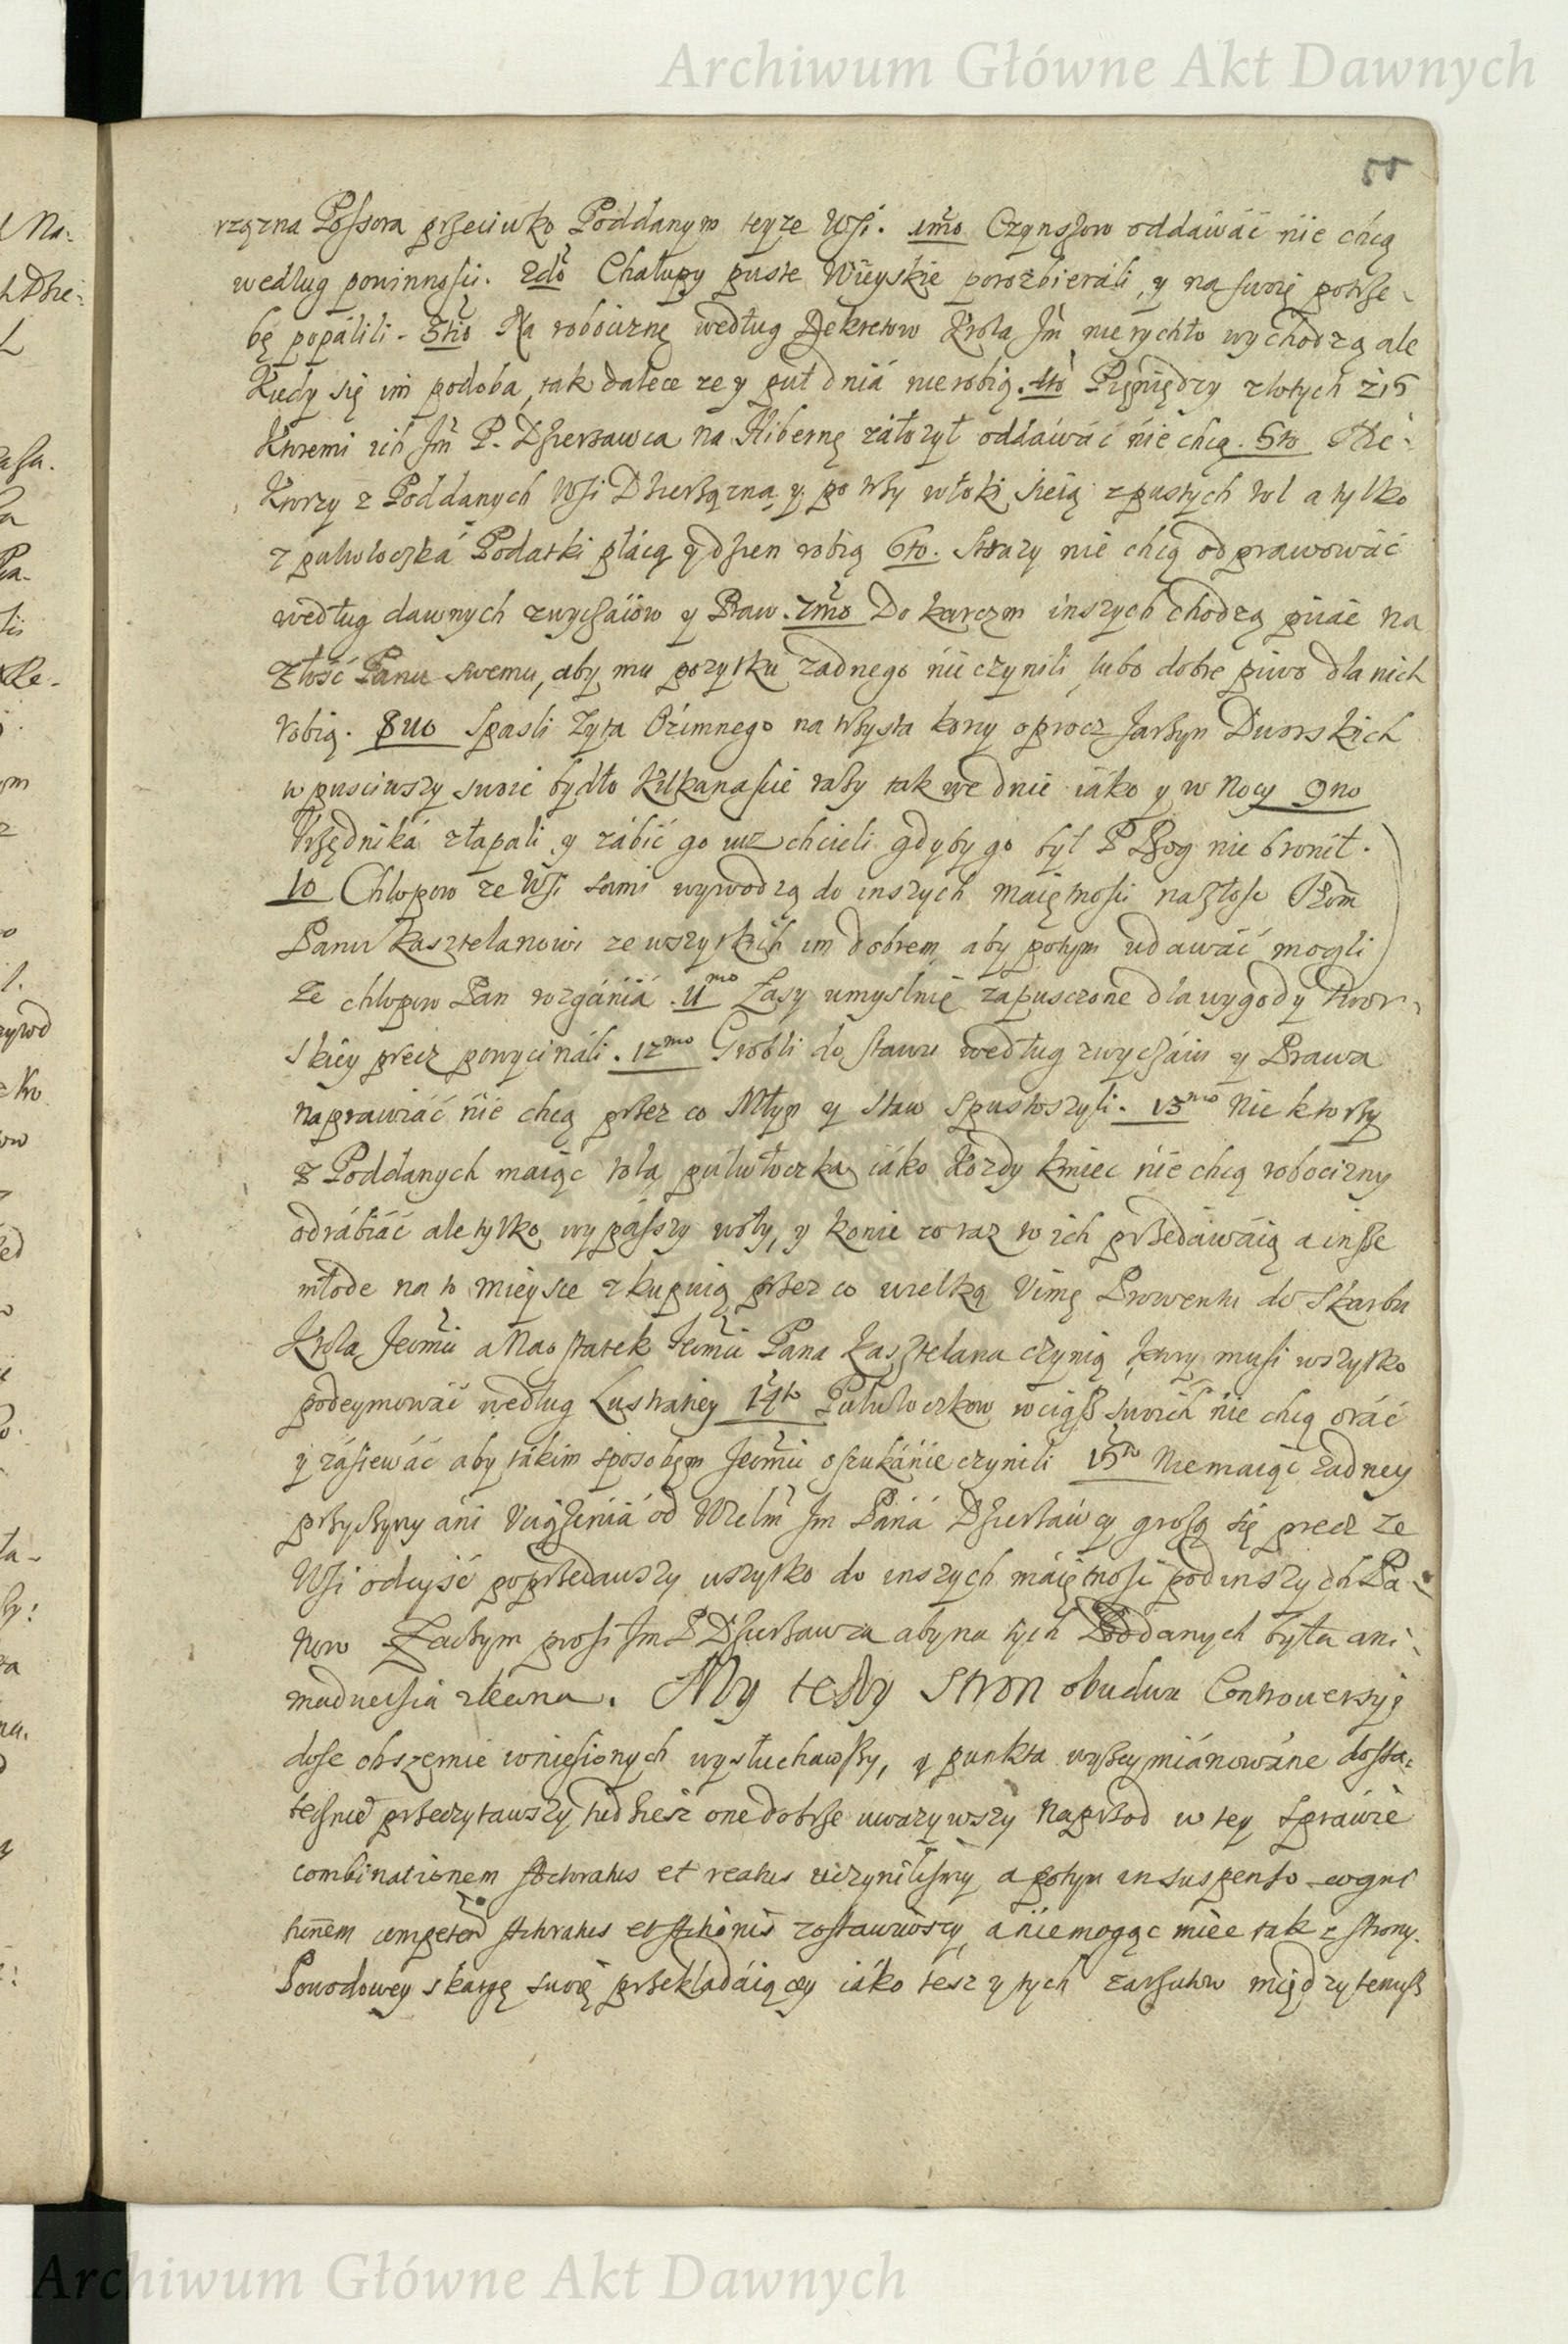 Archiwum Główne Akt Dawnych
55
rzązna Possora przeciwko Poddanym teyze Wsi. 1mo Czynszow oddawáć nie chcą
według powinnosci. 2do Chałupy puste Wieyskie porozbieráli, y na swoię potrze-
bę popálili. 3tio Na robociznę według Dekretow Krola Jm nierychło wychodzą ale
Kiedy się im podoba, tak dalece ze y puł dniá nierobią. 4to Pięniędzy złotych 215
Ktoremi ich Jm P. Dzierzawca na Hibernę záłozył oddawáć nie chcą. 5to Nie-
Ktorzy z Poddanych Wsi Dzierzązną y po trzy włoki sieią z pustych rol a tylko
z pułwłoczká Podatki płácą y dzien robią 6to. Strazy nie chcą odprawowáć
według dawnych zwyczáiow y Praw. 7mo Do karczm inszych chodzą piiác na
złość Panu swemu, aby mu pozytku zadnego nie czynili, lubo dobre piwo dla nich
robią. 8uo Spasli Zyta Ozimnego na trzysta kony oprocz Jarzyn Dworskich
wpusciwszy swoie bydło Kilkanascie razy tak we dnie iáko y w Nocy 9no
Vrzędniká złapali y zábić go iuz chcieli gdyby go był P Bog nie bronił.
10 Chłopow ze Wsi sami wywodzą do inszych maiętnosci na złosc Jeom
Panu Kasztelanowi ze wszytkich im dobrem aby potym udawáć mogli
Ze chłopow Pan rozgániá. 11mo Lasy umyslnie zápusczone dla wygody Dwor-
skiey precz powycináli. 12mo Grobli do stawu według zwyczáiu y Prawa
naprawiáć nie chcą przez co Młyn y Staw Spustoszyli. 13mo Nie ktorzy
z Poddanych maiąc rolą pułwłoczka iáko kozdy kmiec nie chcą robocizny
odrábiáć ale tylko wypászszy woły, y konie coraz to ich przedáwáią a insze
młode na to mieysce zkupuią przez co wielką Vimę Prowentu do Skarbu
Krola Jeomci a Naostatek Jeomci Pana Kasztelana czynią, ktory musi wszytko
podeymowáć według Lustráciey 14to Pułwłoczkow wciąsz swoich nie chcą oráć
y zásiewáć aby tákim sposobem Jeomci oszukánie czynili 15to Niemaiąc zadney
przyczyny áni Vciązeniá od Wielm Jm Páná Dzierzáwcy grożą się precz ze
Wsi odeyść poprzedawszy wszytko do inszych máiętnosci pod inszych Pa-
now Zaczym prosi Jm P Dzierzawca aby na tych Poddanych była ani-
maduersia ztewna. My tedy Stron obudwu Controuersyi
dosc obszernie wniesionych wysłuchawszy, y punkta wyzey miánowáne dosta-
tecznie przeczytawszy tudziesz one dobrze uwazywszy Naprzod w tey spráwie
combinationem Actoratus et reatus uczynilismy, a potym in suspenso cogni
tionem competen Actoratus et Actionis zostawiwszy, a niemogąc miec tak z strony
Powodowey skargę swoię przekładáiącey iáko tesz y tych zarzutow między temisz
Archiwum Główne Akt Dawnych